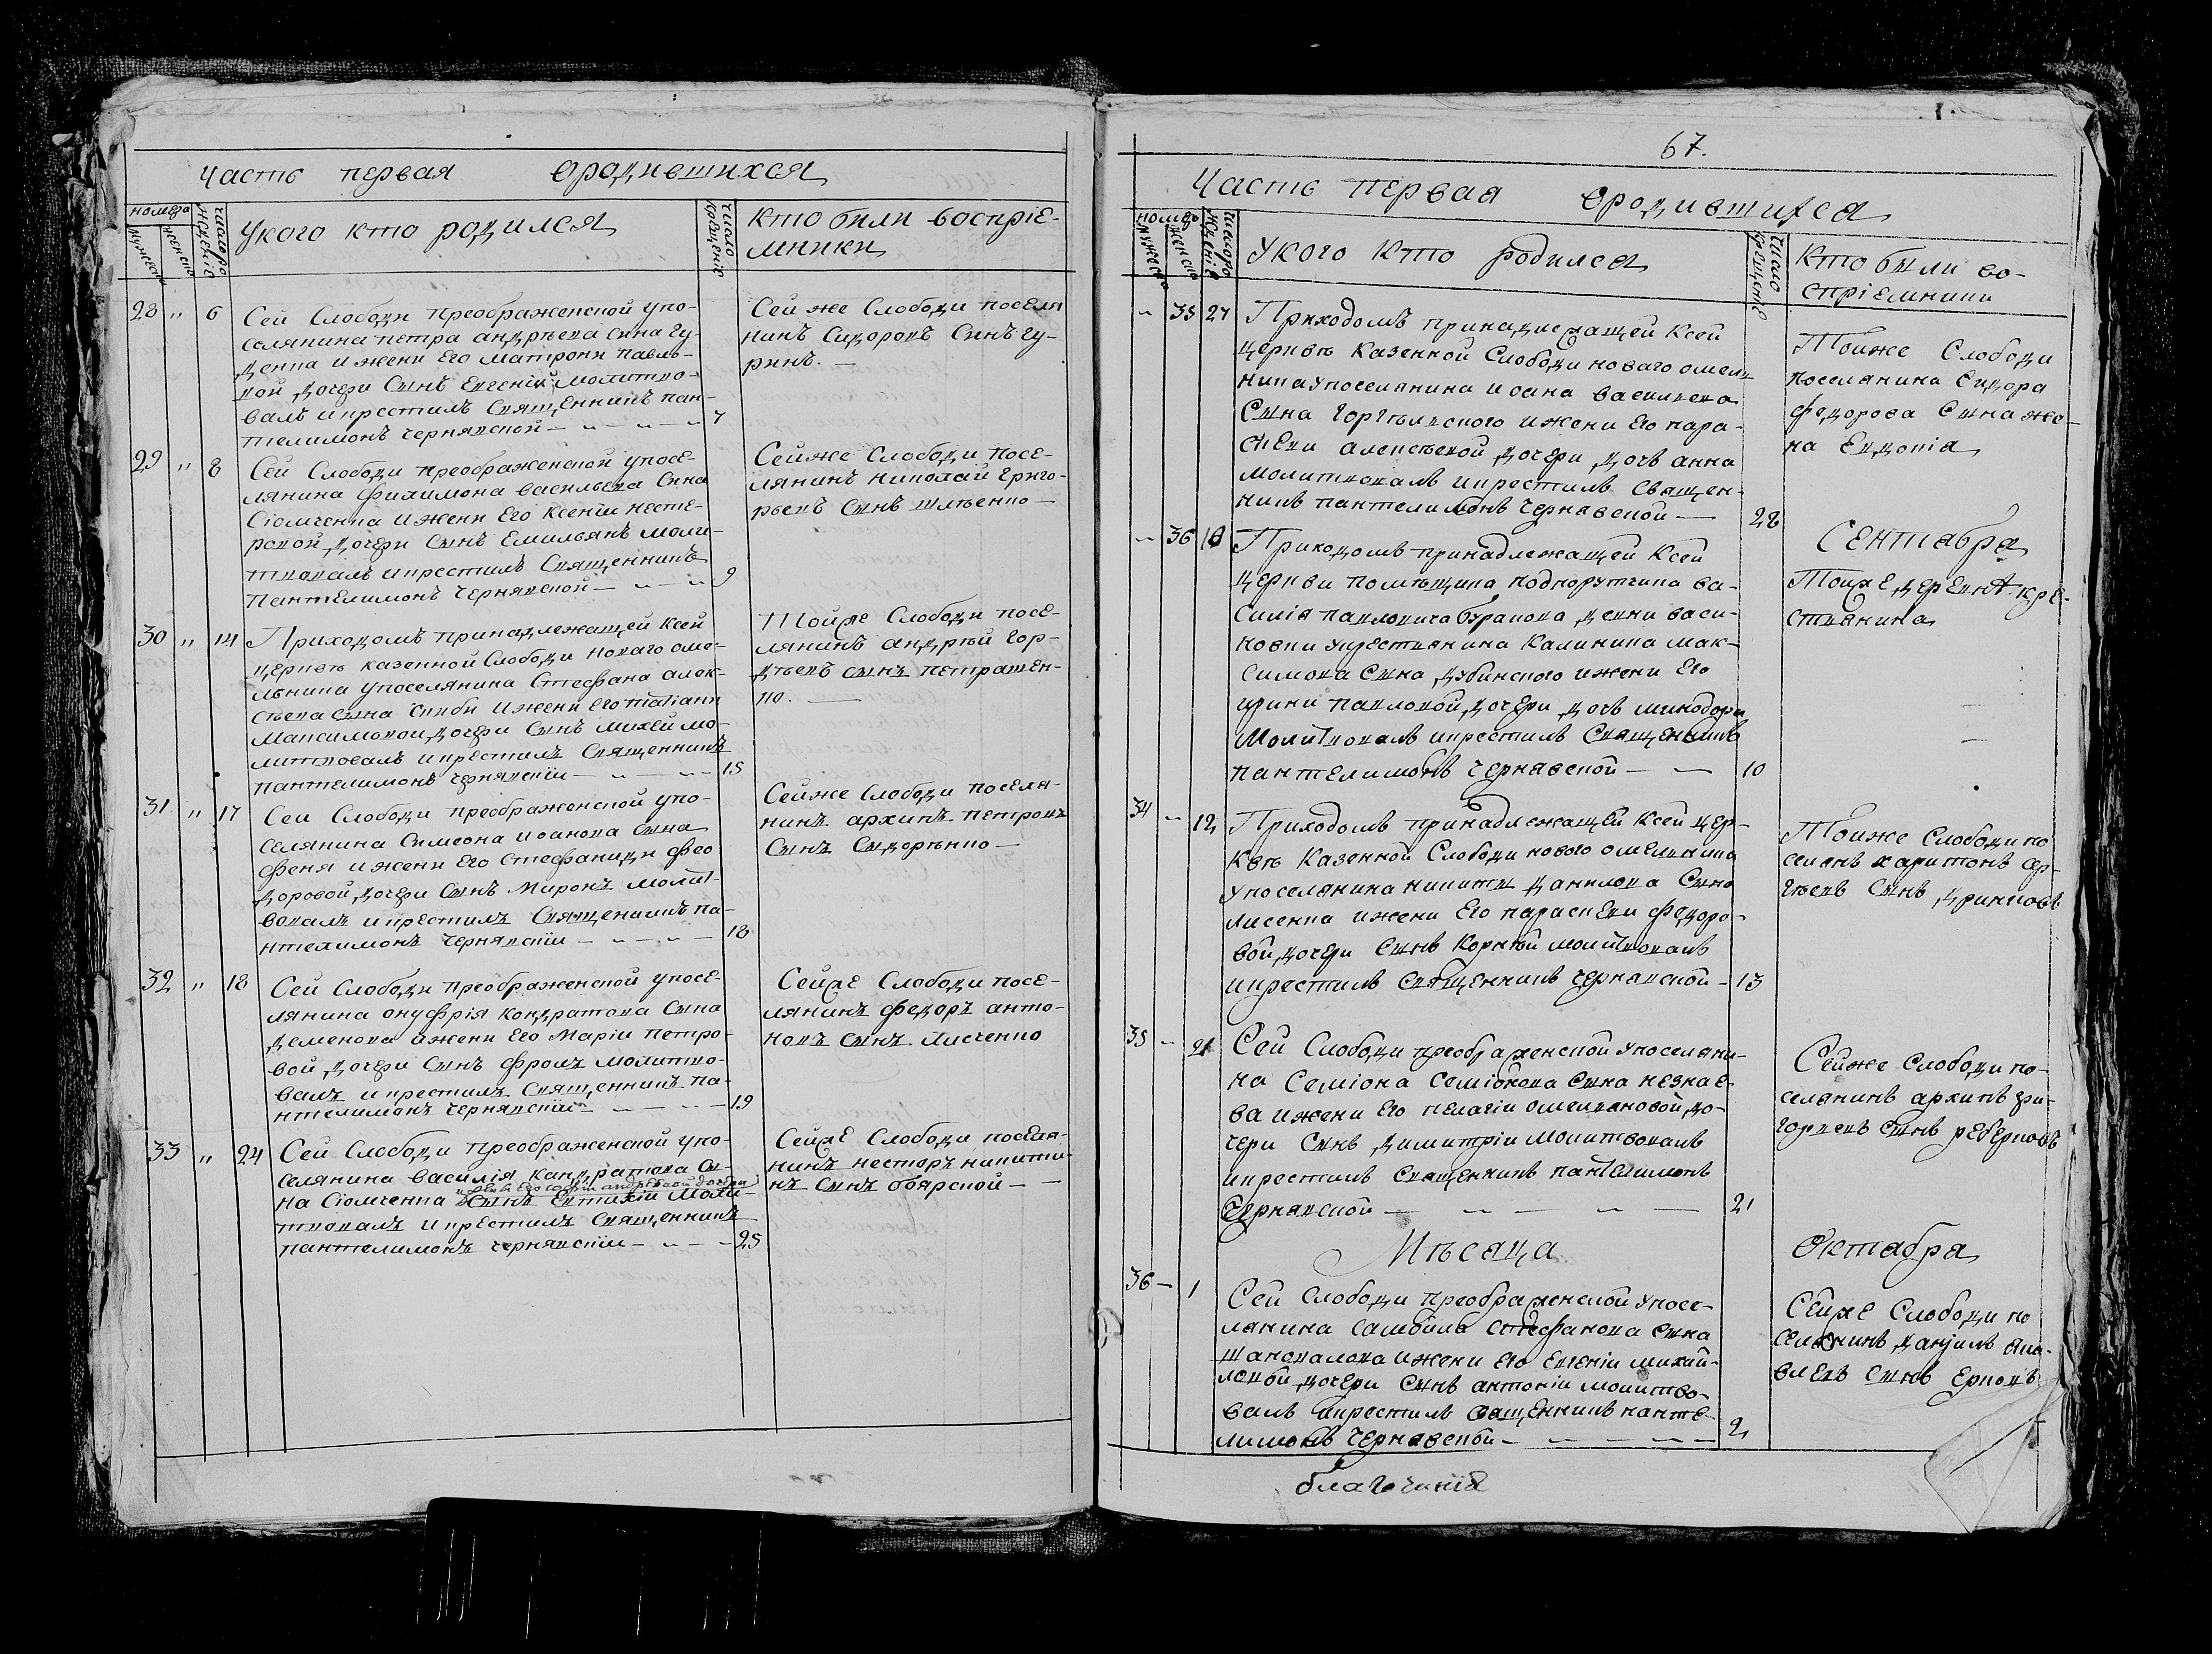 Часть первая ородившихся
номера
мужеска
женска
число рожденiе
Укого кто родился
число крещенiе
Кто били воспрiе-
мники
28 „ 6 Сей Слободи преображенской упо-
селянина петра андрѣева сина гу-
денка и жени Его матрони павло-
вой дочери Сынъ Евгенiй молитво-
валъ икрестилъ Священникъ пан-
телимонъ чернявской — „ — „ — „ 7
Сей же Слободи поселя
нинъ Сидоровъ Синъ гу-
ринъ. —
29 „ 8 Сей Слободи преображенской упосе-
лянина филимона васильева Сина
Сiомченка и жени Его Ксенiи несте-
ровой дочери Сынъ Емильянъ моли-
твовалъ икрестилъ Священникъ
Пантелимонъ чернявской — „ — „ 9
Сейже Слободи посе-
лянинъ николай григо-
рьевъ Сынъ шлѣенко —
30 „ 14 Приходомъ принадлежащей Ксей
церквѣ казенной Слободи новаго оме-
льника упоселянина Стефана алек-
сѣева Сына Скиби и жени Его татiани
максимовой дочери Сынъ михей мо-
литвовалъ икрестилъ Священникъ
пантелимонъ чернявскiй — „ — „ — 15
Тойже Слободи посе-
лянинъ андрѣй гор-
дѣевъ сынъ петрашен-
ко. —
31 „ 17 Сей Слободи преображенской упо-
селянина Симеона иоанова Сина
феня и жени Его стефаниди фео
доровой дочери Сынъ миронъ молит-
вовалъ икрестилъ Священникъ па-
нтелимонъ чернявскiй — „ — „ — 18
Сейже Слободи поселя-
нинъ архипъ петровъ
Сынъ Сидорѣнко —
32 „ 18 Сей Слободи преображенской упосе-
лянина онуфрiя кондратова Сина
Деменова и жени Его марiи петро-
вой дочери Сынъ фролъ молитво-
валъ икрестилъ Священникъ па-
нтелимонъ чернявскiй — „ — „ — 19
Сейже Слободи посе-
лянинъ федоръ анто-
новъ сынъ лисченко
33 „ 24 Сей Слободи преображенской упо-
селянина василiя кандратова Си-
ижени Его софiи андрѣевой дочери
на Сiомченка Сынъ Евтихiй моли-
твовалъ икрестилъ Священникъ
пантелимонъ чернявскiй — „ — „ — 25
Сейже Слободи поселя-
нинъ несторъ никити-
нъ сынъ боярской — —
67.
Часть первая ородившихся
номера
мужеска
женска
число рожденiе
Укого кто родился
число крещенiе
Кто были во-
спрiемники
„ 35 27 Приходомъ принадлежащей Ксей
церквѣ Казенной Слободи новаго омель
ника упоселянина иоана васильева
Сына горгѣлского ижени Его пара-
скеви алексѣевой дочери дочъ анна
молитвовалъ икрестилъ Священ-
никъ пантелимонъ чернявской — 28
Тоиже Слободи
поселянина Сидора
федорова Сина же-
на Евдокiя
Сентября
„ 36 10 Приходомъ принадлежащей Ксей
церкви помѣщика подпорутчика ва-
силiя павловича буракова девки васи-
новки укрестянина Калиника мак-
симова Сына дубинского ижени Его
ирини павловой дочери дочъ минодора
молитвовалъ икрестилъ Священникъ
пантелимонъ чернявской — — 10
Тойже деревнѣ кре-
стянина
34 — 12 Приходомъ принадлежащей Ксей цер-
квѣ Казенной Слободи новаго омелника
упоселянина никити данилова Сына
лисенка ижени Его параскеви федоро-
вой дочери Сынъ Корнѣй молитвовалъ
икрестилъ Священникъ чернявской — 13
Тоиже Слободи по
селянъ харитонъ сер-
гѣевъ Сынъ
35 — 21 Сей Слободи преображенской упоселяни-
на Семiона Семiонова Сына незнае-
ва ижени Его пелагiи омеляновой до-
чери Сынъ Димитрiи молитвовалъ
икрестилъ Священникъ пантелимонъ
чернявской — „ — „ — 21
Сейже Слободи по-
селянинъ архипъ гри-
горiевъ Сынъ реберковъ
Мѣсяца Октября
36 — 1 Сей Слободи преображенской упосе-
лянина самоила стефанова Сына
шаповалова ижени Его Евгенiи михай-
ловой дочери Сынъ антонiи молитво-
валъ икрестилъ Священникъ панте-
лимонъ чернявской — — — „ — 2
Сейже Слободи по
селянинъ данiилъ
Сынъ Ерковъ
благочинiя